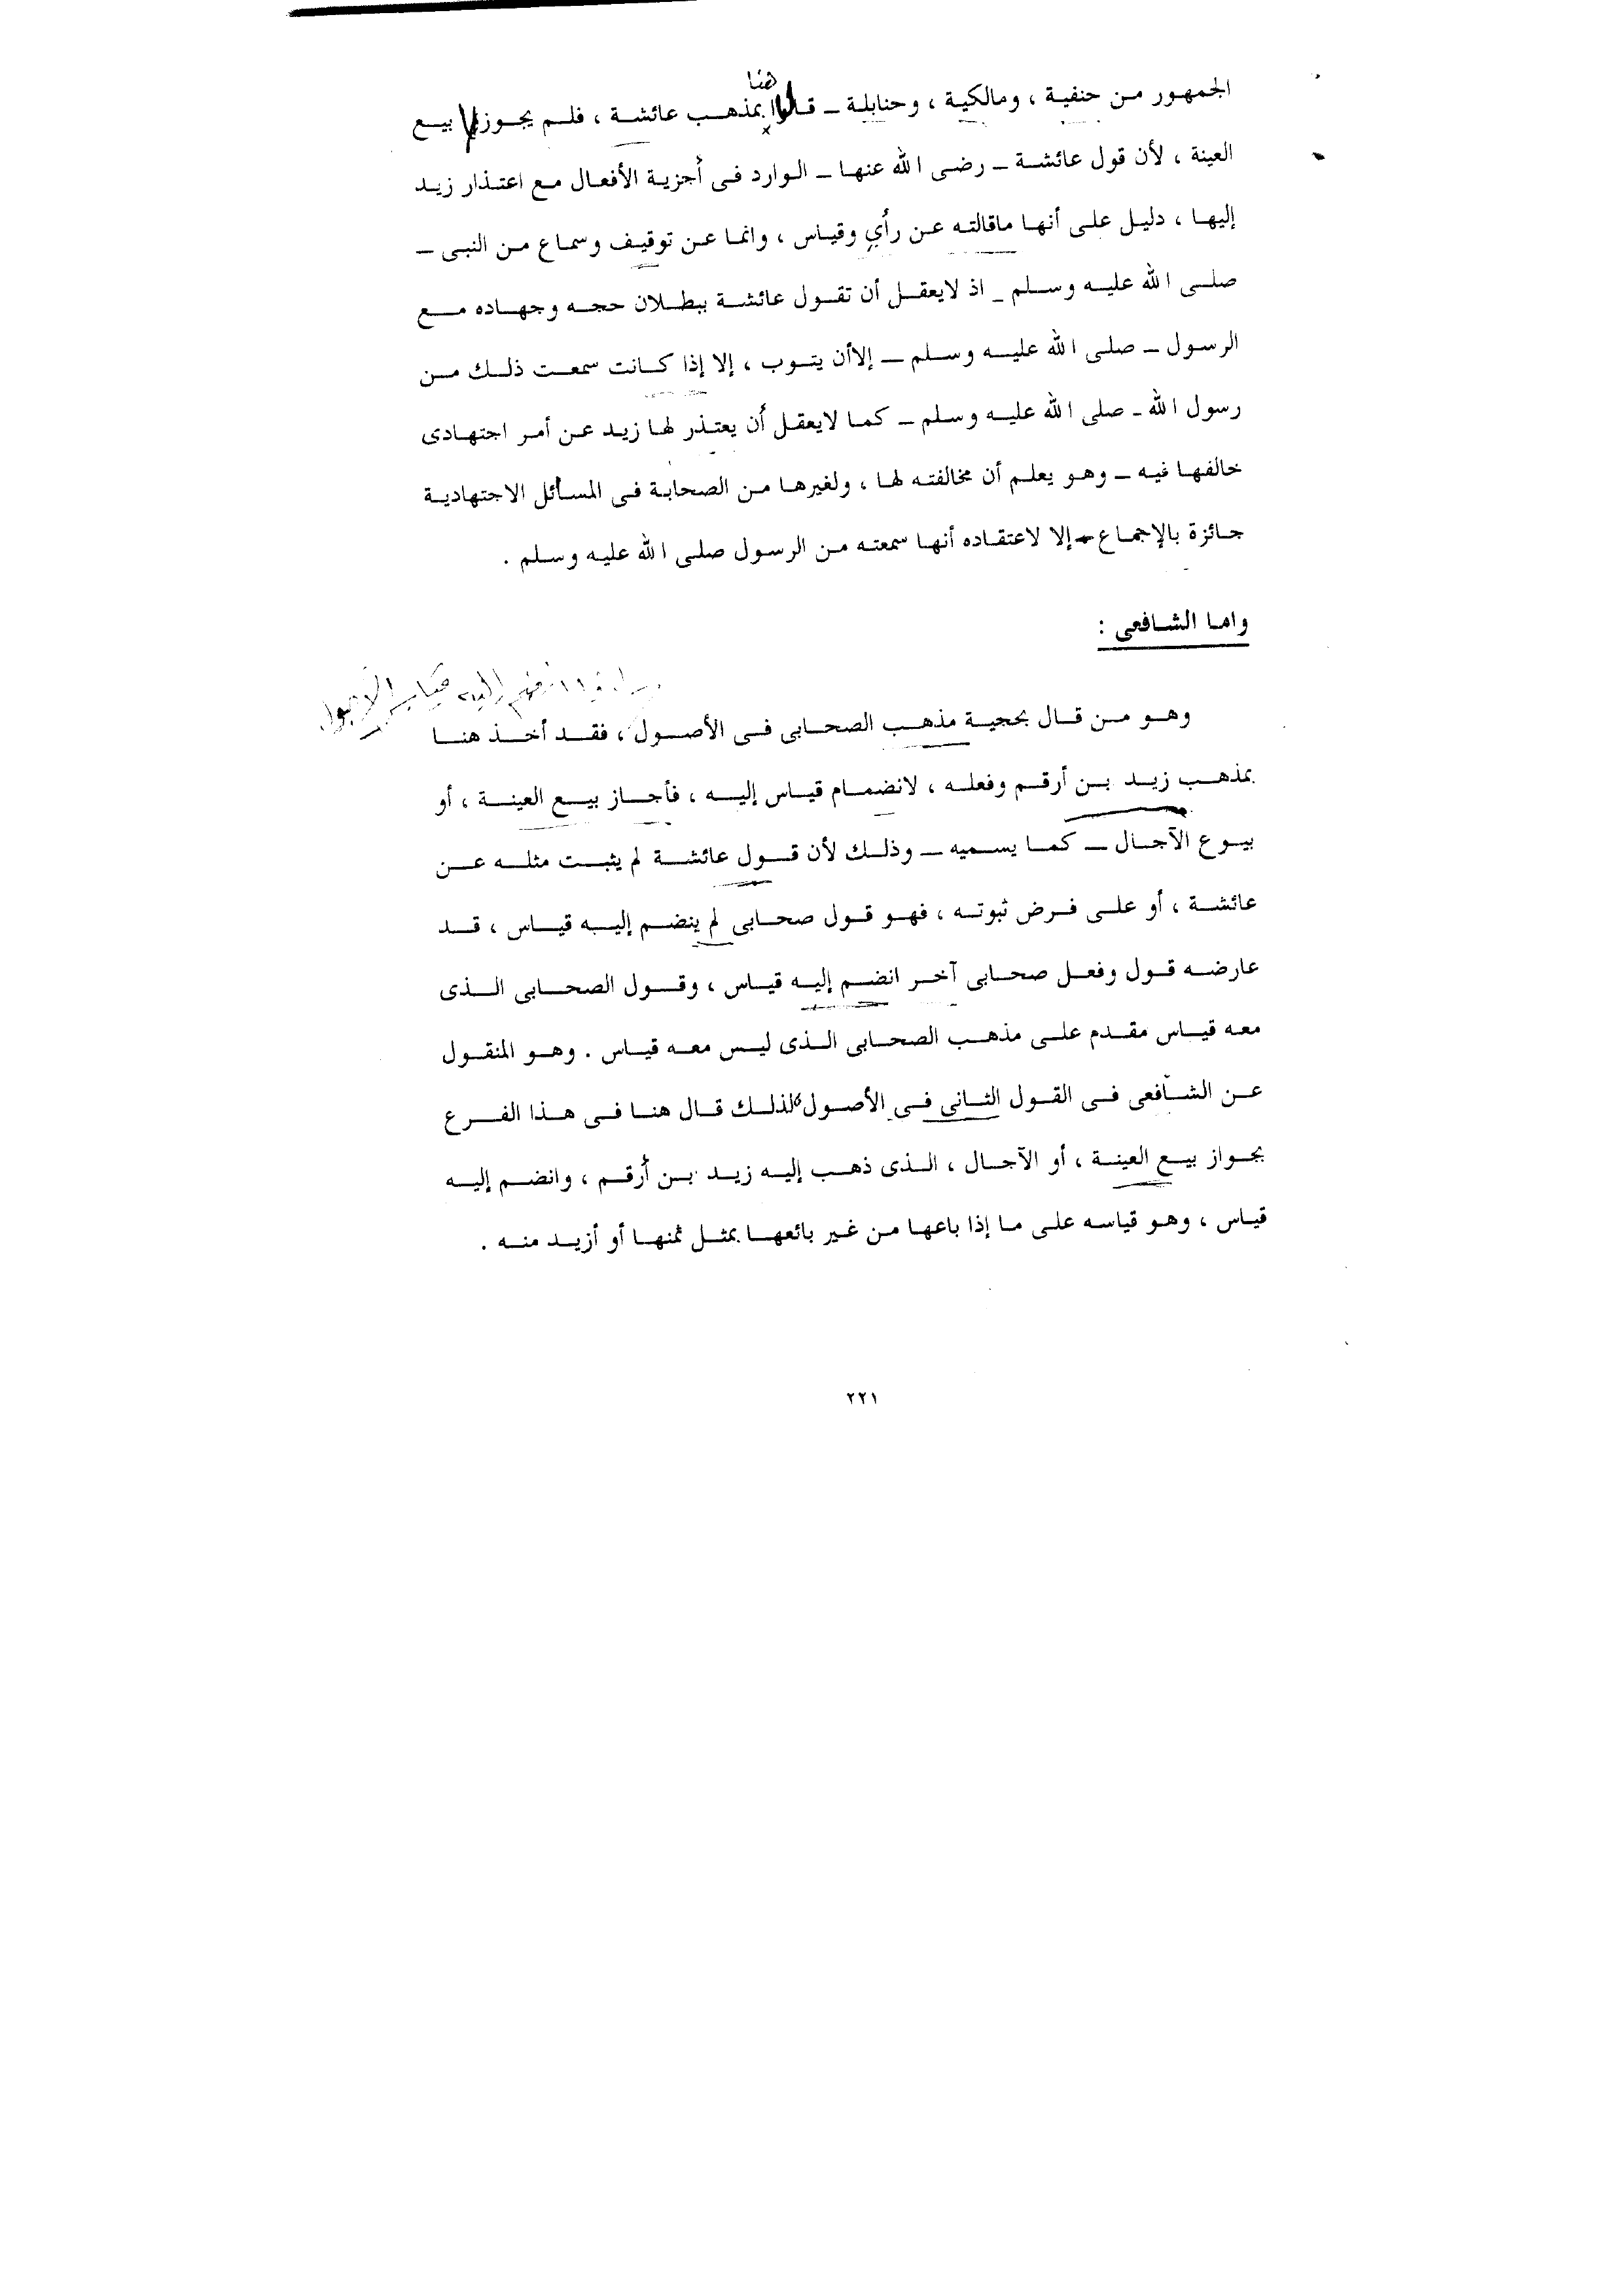 هنا
الجمهور من حنفية ، ومالكية ، وحنابلة ــ قالوا بمذهب عائشة ، فلم يجوزوا بيع
العينة ، لأن قول عائشة ــ رضى الله عنها ــ الوارد فى أجزية الأفعال مع اعتذار زيد
إليها ، دليل على أنها ماقالته عن رأي وقياس ، وانما عن توقيف وسماع من النبى ــ
صلى الله عليه وسلم ــ اذ لايعقل أن تقول عائشة ببطلان حجه وجهاده مع
الرسول ــ صلى الله عليه وسلم ــ إلاأن يتوب ، إلا إذا كانت سمعت ذلك من
رسول الله ــ صلى الله عليه وسلم ــ كما لايعقل أن يعتذر لها زيد عن أمر اجتهادى
خالفها فيه ــ وهو يعلم أن مخالفته لها ، ولغيرها من الصحابة فى المسائل الاجتهادية
جائزة بالإجماع ــ إلا لاعتقاده أنها سمعته من الرسول صلى الله عليه وسلم .
واما الشافعى :
إليه قياس الأصول
وهو من قال بحجية مذهب الصحابى فى الأصول ، فقد أخذ هنا
بمذهب زيد بن أرقم وفعله ، لانضمام قياس إليه ، فأجاز بيع العينة ، أو
بيوع الآجال ــ كما يسميه ــ وذلك لأن قول عائشة لم يثبت مثله عن
عائشة ، أو على فرض ثبوته ، فهو قول صحابى لم ينضم إليه قياس ، قد
عارضه قول وفعل صحابى آخر انضم إليه قياس ، وقول الصحابى الذى
معه قياس مقدم على مذهب الصحابى الذى ليس معه قياس . وهو المنقول
عن الشافعى فى القول الثانى فى الأصول، لذلك قال هنا فى هذا الفرع
بجواز بيع العينة ، أو الآجال ، الذى ذهب إليه زيد بن أرقم ، وانضم إليه
قياس ، وهو قياسه على ما إذا باعها من غير بائعها بمثل ثمنها أو أزيد منه .
٢٢١